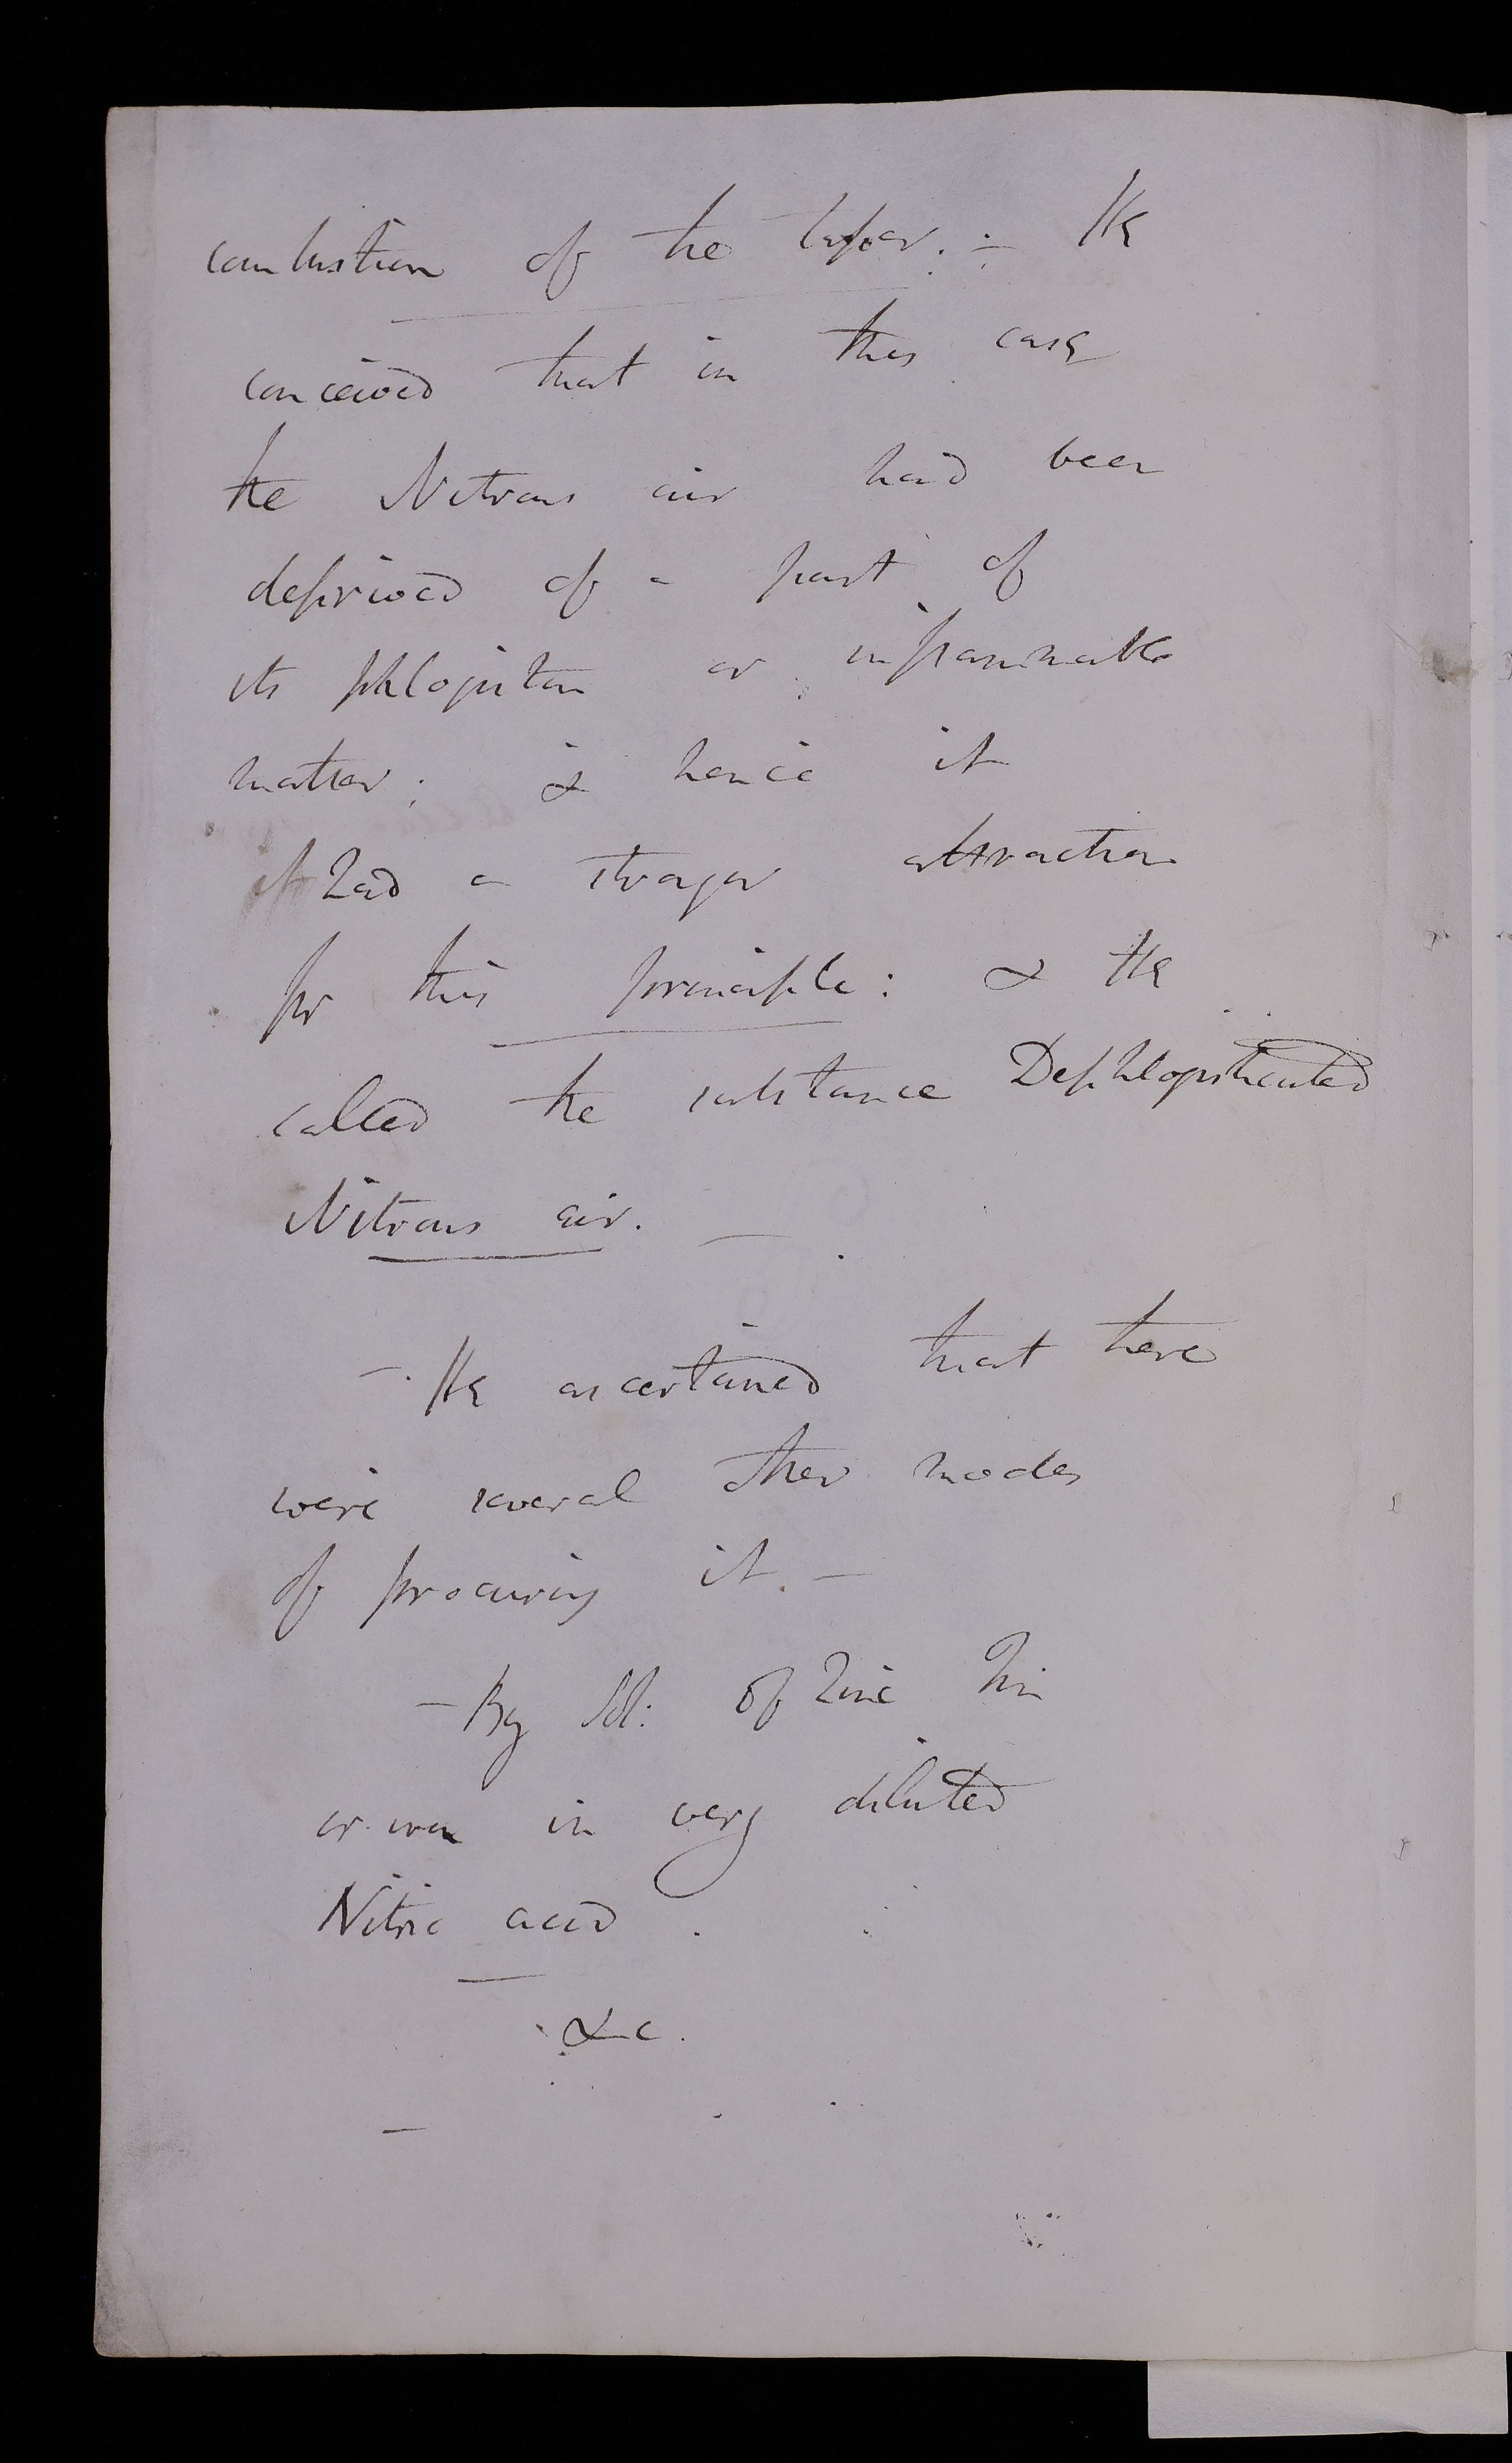 combustion of the taper. - He
conceived that in this case
the Nitrous air had been
deprived of a part of
its phlogiston or inflammable
matter; & hence it
had a stronger attraction
for this principle: & He
called the substance Dephlogisticated
Nitrous air. —
- He ascertained that there
were several other modes
of procuring it. -
- By Sol: of Zinc Tin
or iron in very diluted
Nitric acid.
&c.